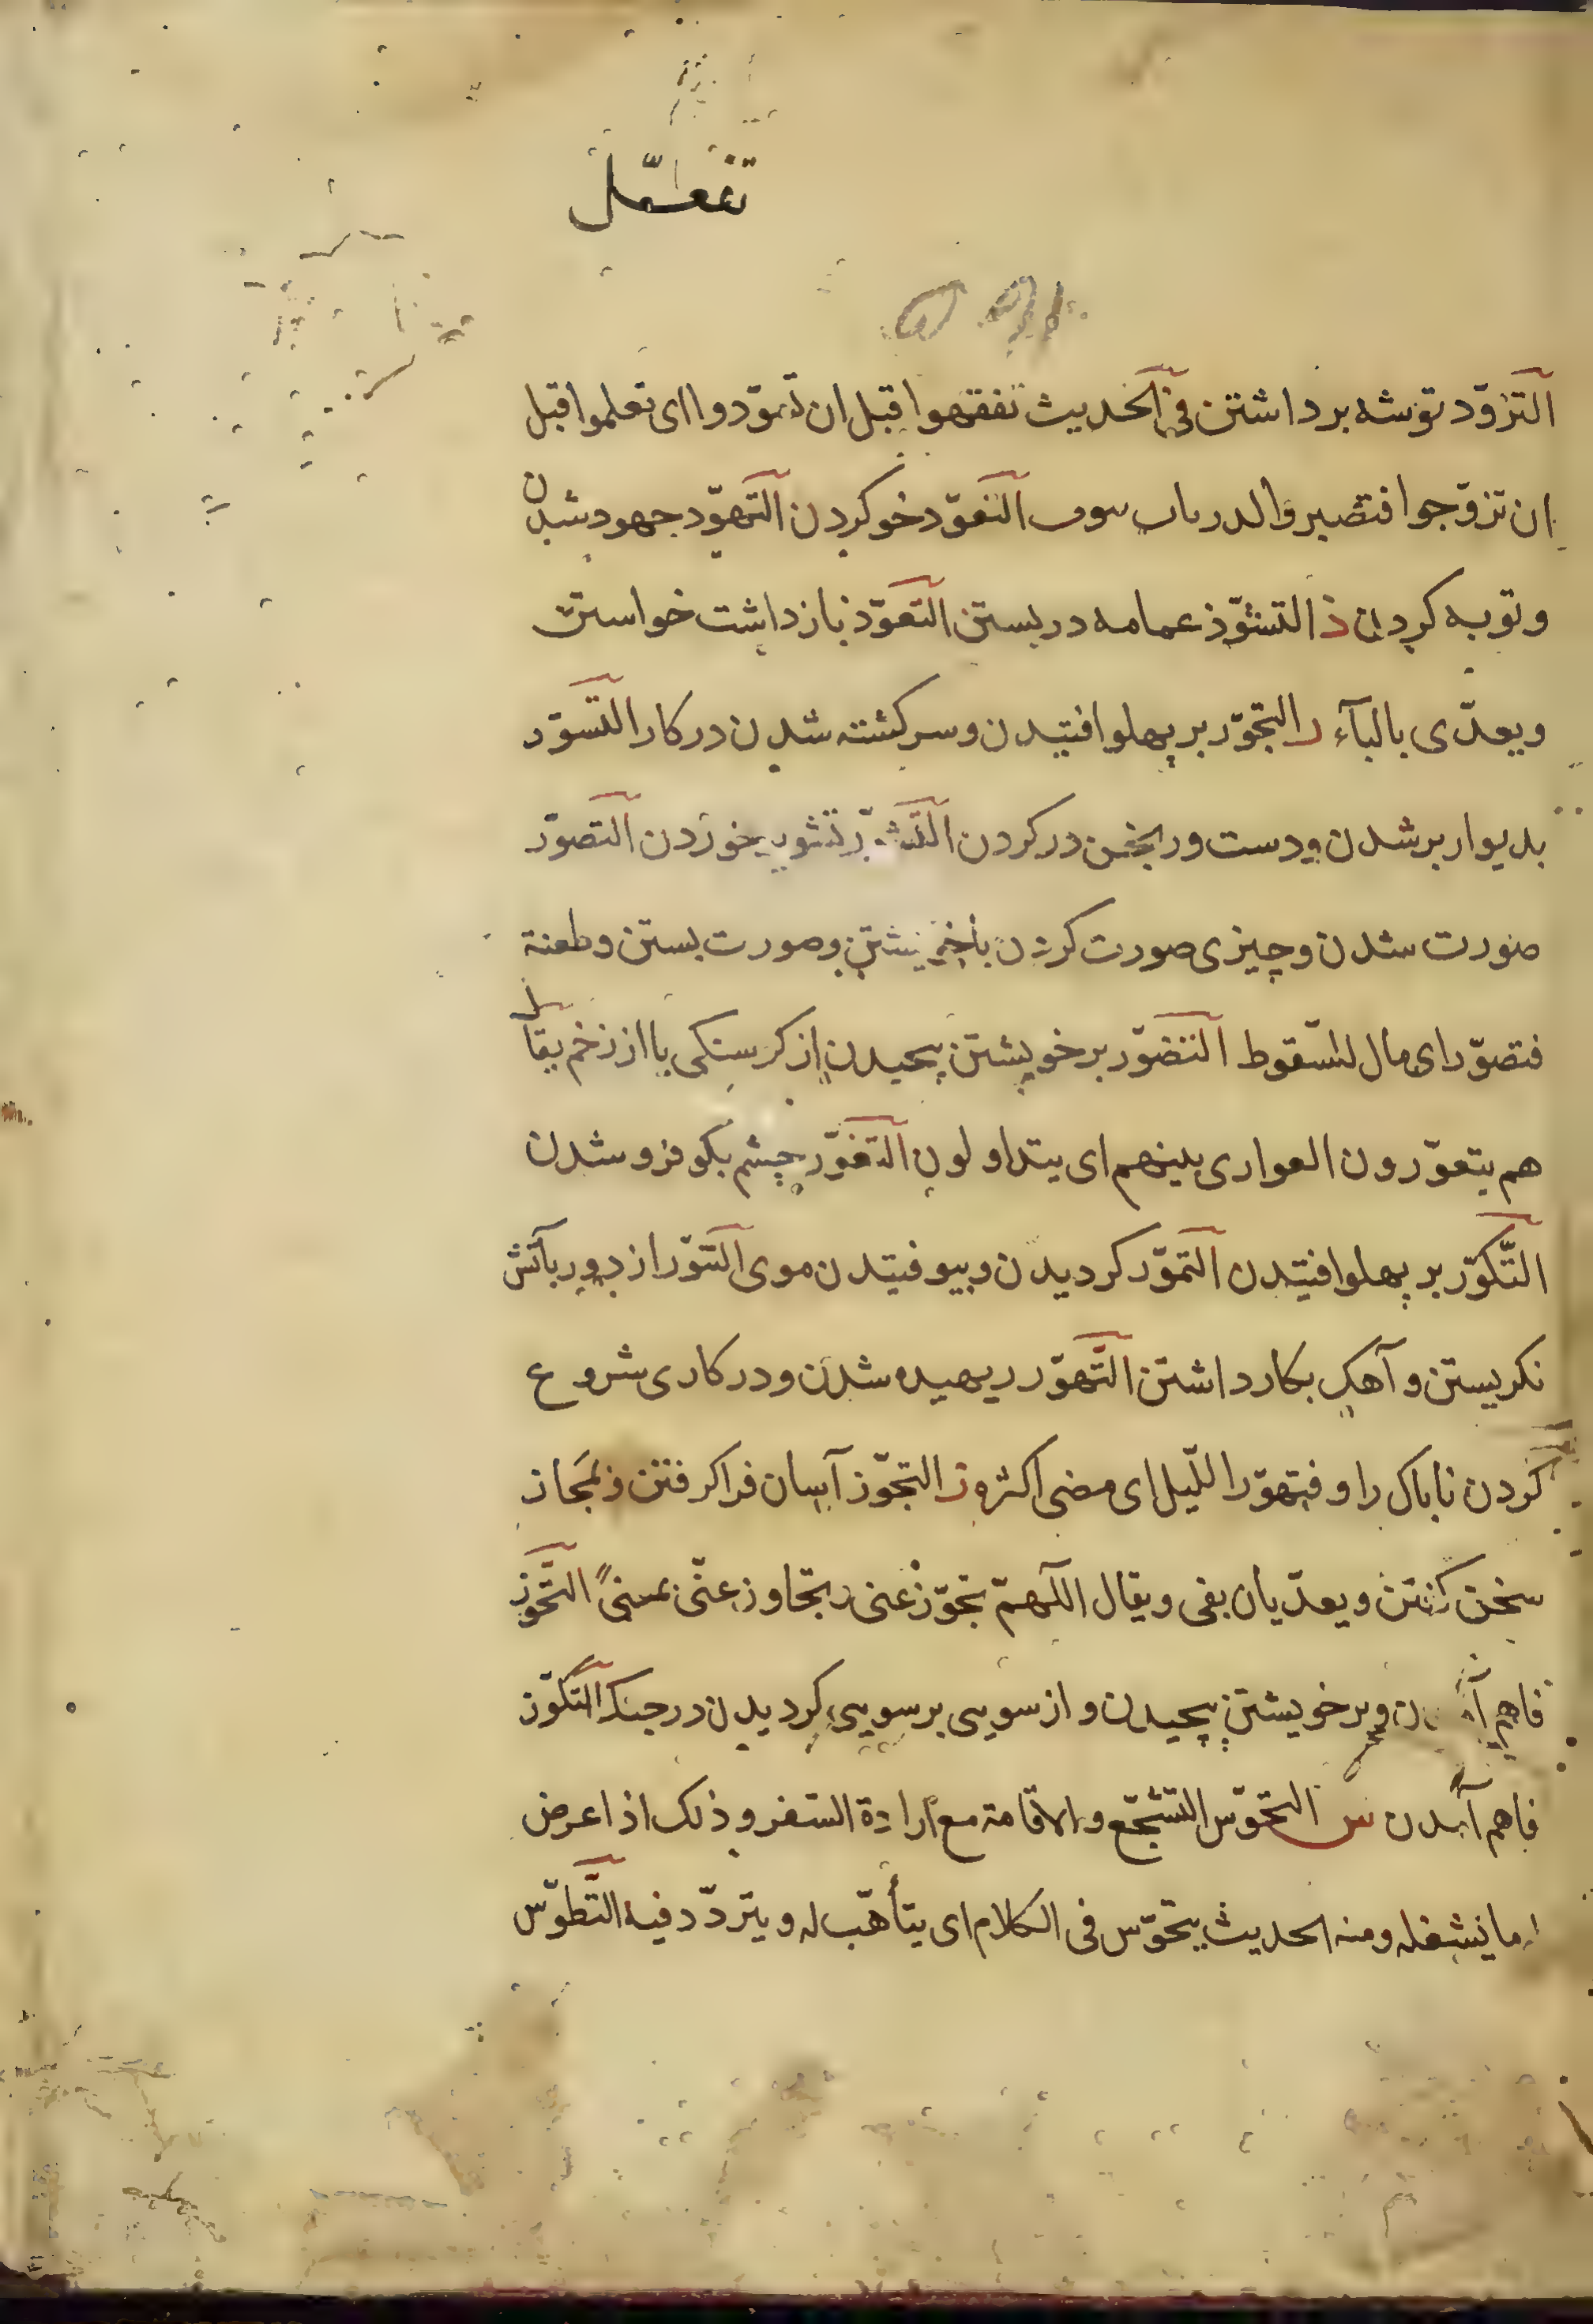 تفعّل
التزوّد توشه برداشتن فی الحدیث تفقهوا قبل ان تسوّدوا ای تعلموا قبل
ان تزوّجوا فتصیروا الدرباب سوف التعوّد خو کردن التهوّد جهود شدن
و توبه کردن ذ التشوّذ عمامه در بستن التعوّذ بازداشت خواستن
و یعدّی بالبآء ر التجوّر بر پهلو افتیدن و سرکشته شدن در کار التسوّر
بدیوار بر شدن و دست ورنجن در کردن التشوّر تشویر خوردن التصوّر
صورت شدن و چیزی صورت کردن با خویشتن و صورت بستن و طعنة
فتصوّر ای مال للسّقوط التضوّر بر خویشتن پیچیدن از کرسنکی یا از زخم یقال
هم یتعوّرون العواری بینهم ای یتداولون التغوّر چشم بکو فرو شدن
التّکوّر بر پهلو افتیدن التموّر کردیدن و بیوفتیدن موی التنوّر از دور بآتش
نکریستن و آهک بکار داشتن التّهوّر ریهیده شدن و در کاری شروع
کردن ناباک را و فتهوّر اللّیل ای مضی اکثره ز التجوّز آسان فرا کرفتن و بمجاز
سخن کفتن و یعدّیان بفی و یقال اللّهمّ تجوّز عنی و تجاوز عنّی بمعنیً التّحوّز
فاهم آمدن و بر خویشتن پیچیدن و از سویی بر سویی کردیدن در جنک التّکوّز
فاهم آمدن س التحوّس التشجّع والاقامة مع ارادة السّفر و ذلک اذا عرض
له ما یشغله و منه الحدیث یتحوّس فی الکلام ای یتأهّب له و یتردّد فیه التّطوّس